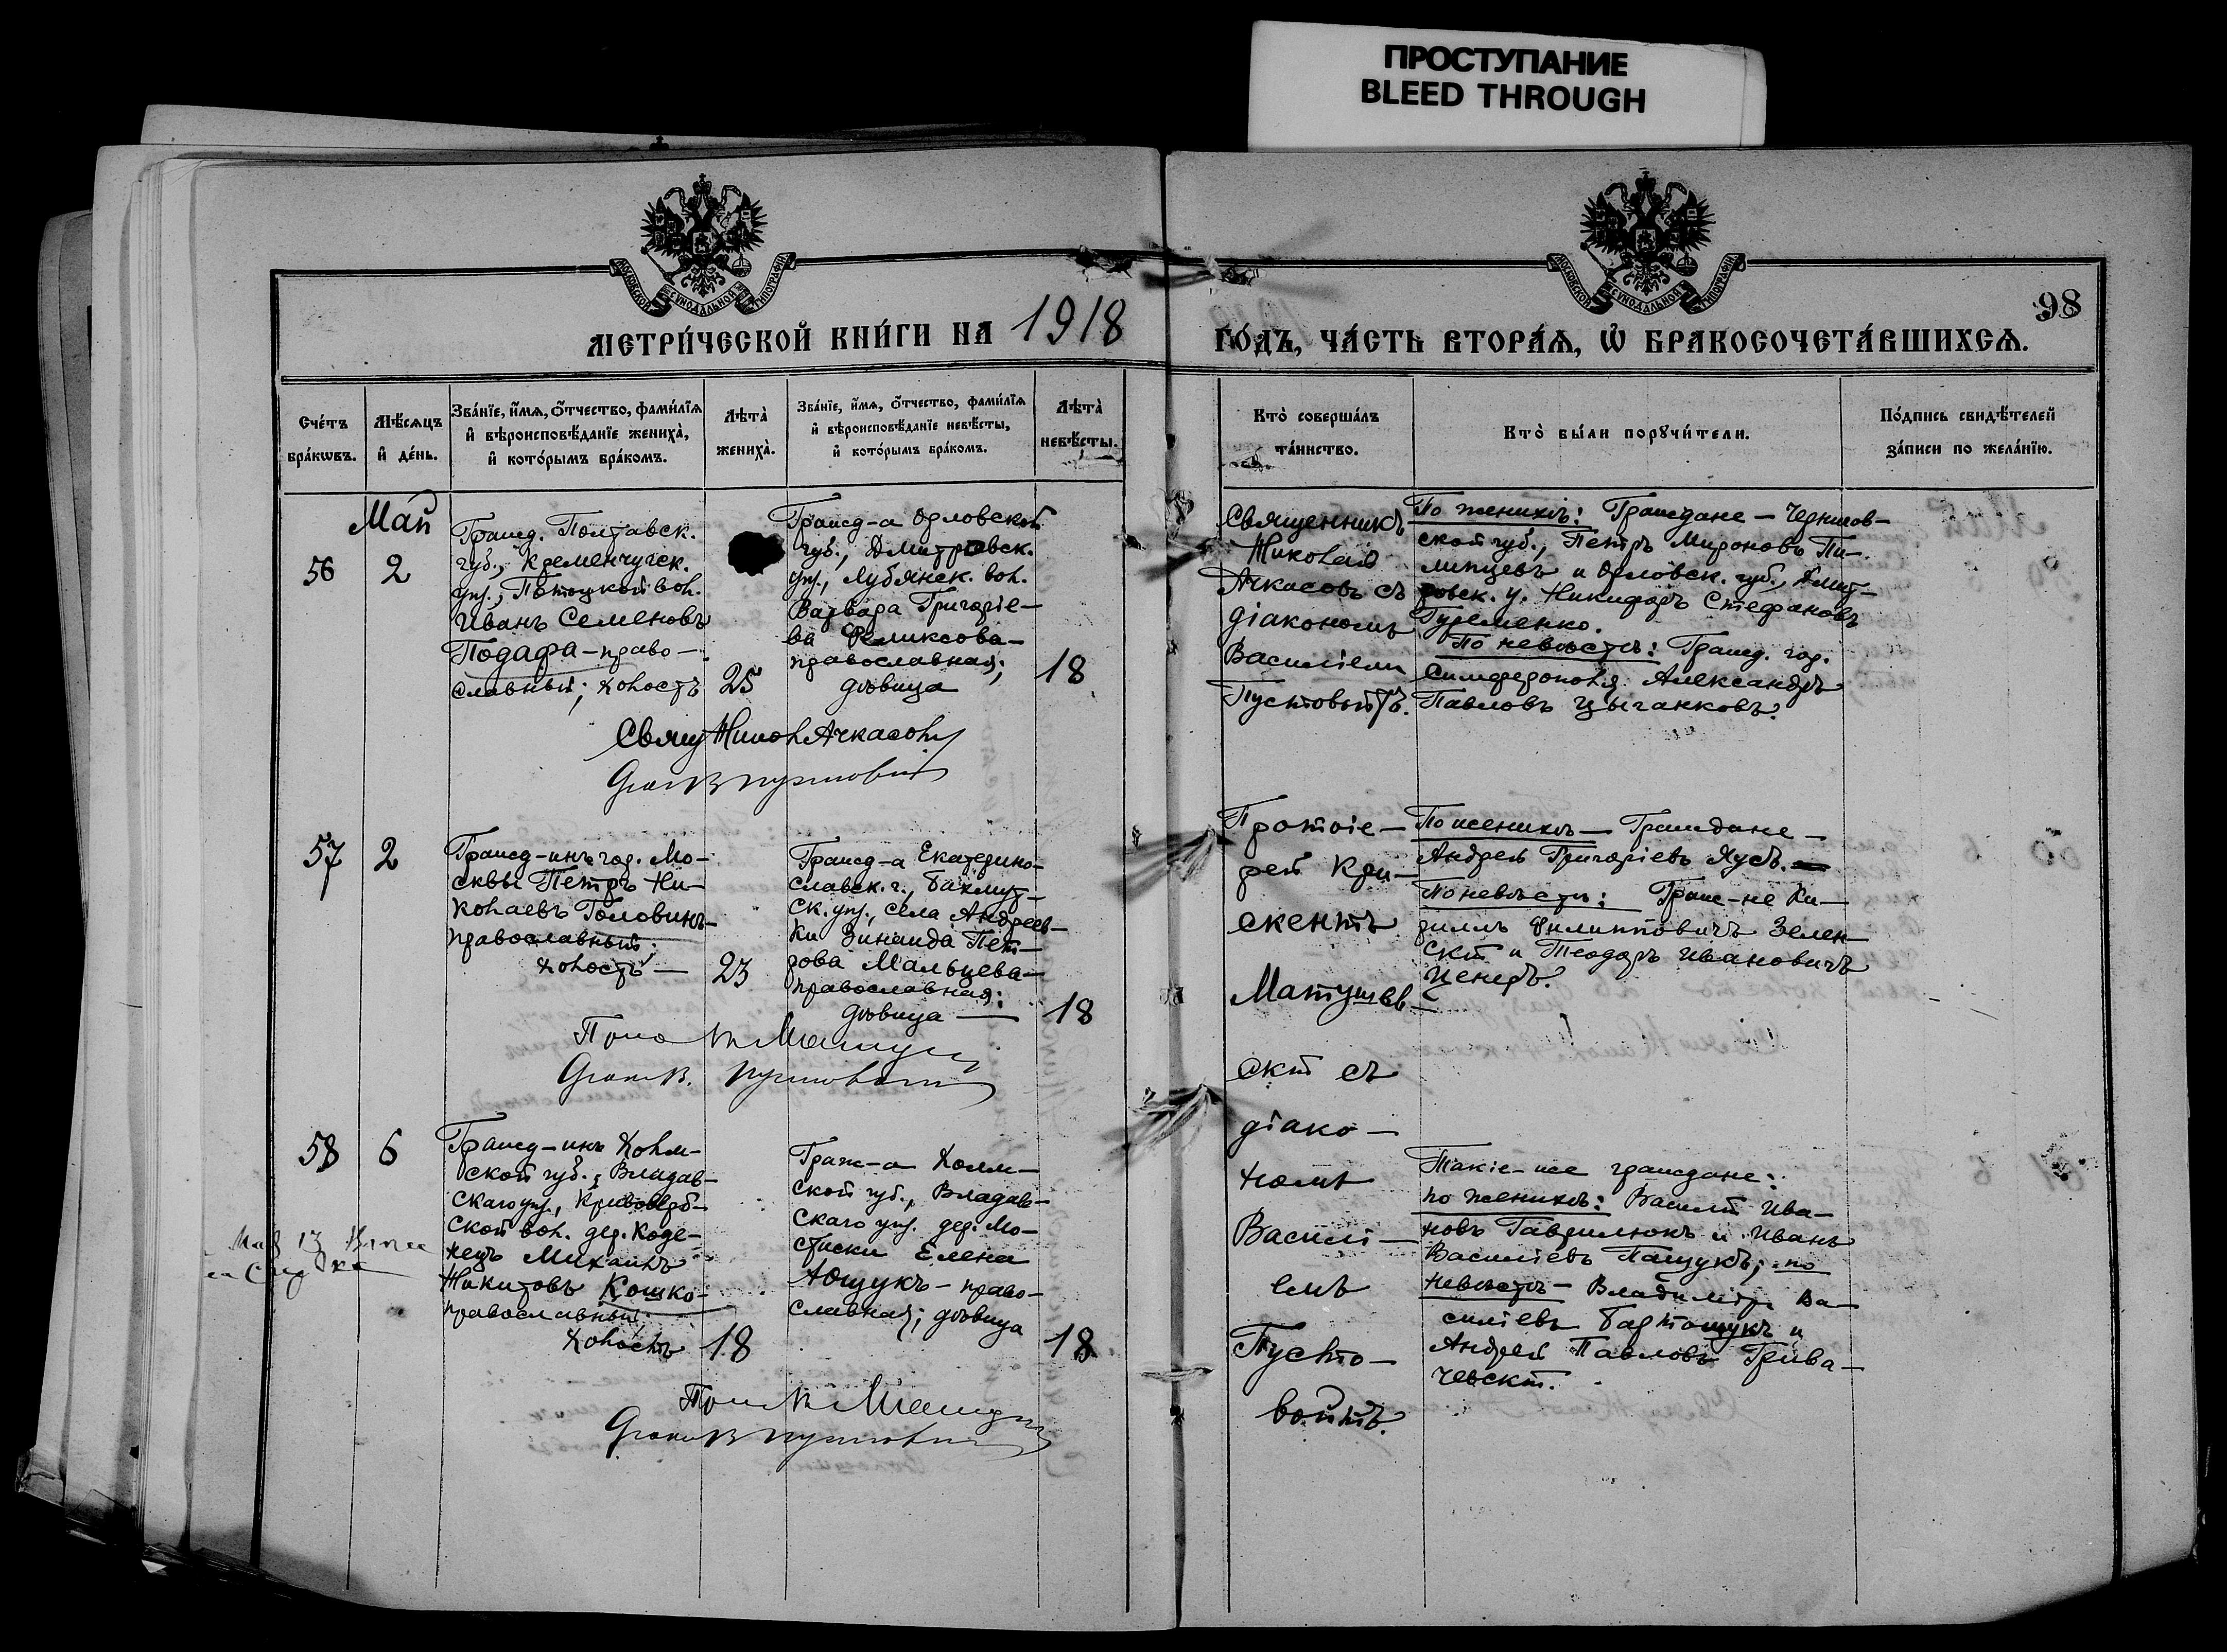 ПРОСТУПАНИЕ
BLEED THROUGH
МОСКОВСКОЙ СѴНОДАЛЬНОЙ ТИПОГРАФІИ
МОСКОВСКОЙ СѴНОДАЛЬНОЙ ТИПОГРАФІИ
98
МЕТРИ́ЧЕСКОЙ КНИ́ГИ НА 1918
ГО́ДЪ, ЧА́СТЬ ВТОРА́Ѧ, Ѡ҆ БРАКОСОЧЕТА́ВШИХСѦ.
Сче́тъ
бра́кѡвъ.
Мѣ́сѧцъ
и҆ де́нь.
Зва́нїе, и҆́мѧ, ѻ҆́тчество, фами́лїѧ
и҆ вѣроисповѣ́данїе жениха̀,
и҆ кото́рымъ бра́комъ.
Лѣта̀
жениха̀.
Зва́нїе, и҆́мѧ, ѻ҆́тчество, фами́лїѧ
и҆ вѣроисповѣ́данїе невѣ́сты,
и҆ кото́рымъ бра́комъ.
Лѣта̀
невѣ́сты.
Кто̀ соверша́лъ
та́инство.
Кто̀ бы́ли порꙋчи́тели.
По́дпись свидѣ́телей
за́писи по жела́нїю.
Май
56
2
Гражд. Полтавск.
губ., Кременчугск.
уѣз., Потоцкой вол.
Иванъ Семеновъ
Подафа - право-
славный; холостъ
25
Гражд-а Орловской
губ., Дмитровск.
уѣз., Лубянск. вол.
Варвара Григоріе-
ва
православная;
дѣвица
18
Священникъ
Николай
Ачкасовъ съ
діакономъ
Василіемъ
Пустовойтъ.
По женихѣ: Граждане - Чернигов-
ской губ., Петръ Мироновъ Пи-
липцевъ и Орловск. губ., Дмит-
ровск. у. Никифоръ Стефановъ
Гуременко.
По невѣстѣ: Гражд. гор.
Симферополя Александръ
Павловъ Цыганковъ.
Свящ Никол Ачкасовъ
57
2
Гражд-инъ гор. Мо-
сквы Петръ Ни-
колаевъ Головинъ-
православный;
холостъ -
23
Гражд-а Екатерино-
славск. г., Бахмут-
ск. уѣз., села Андреев-
ки Зинаида Пет-
рова Мальцева-
православная;
дѣвица
18
Протоіе-
рей Кри-
скентъ
Матушев-
скій съ
діако-
номъ
Василі-
емъ
Пусто-
войтъ.
По женихѣ - Граждане -
Андрей Григоріевъ Яусъ.
По невѣстѣ: Граж-не Ки-
риллъ Филипповичъ Зелен-
скій и Теодоръ Ивановичъ
58
6
Гражд-инъ Холм-
ской губ., Владав-
скаго уѣз., Кривовѣрб-
ской вол. дер. Коде-
нецъ Михаилъ
Никитовъ Кошко-
православный;
холостъ
18
Граж-а Холм-
ской губ., Владав-
скаго уѣз. дер. Мо-
стиски Елена
Ющукъ - право-
славная; дѣвица
18
Такіе-же граждане:
по женихѣ: Василій Ива-
новъ Гаврилюкъ и Иванъ
Василіевъ Пащукъ; по
невѣстѣ - Владиміръ Ва-
силіевъ Бартошукъ и
Андрей Павловъ Грива-
чевскій.